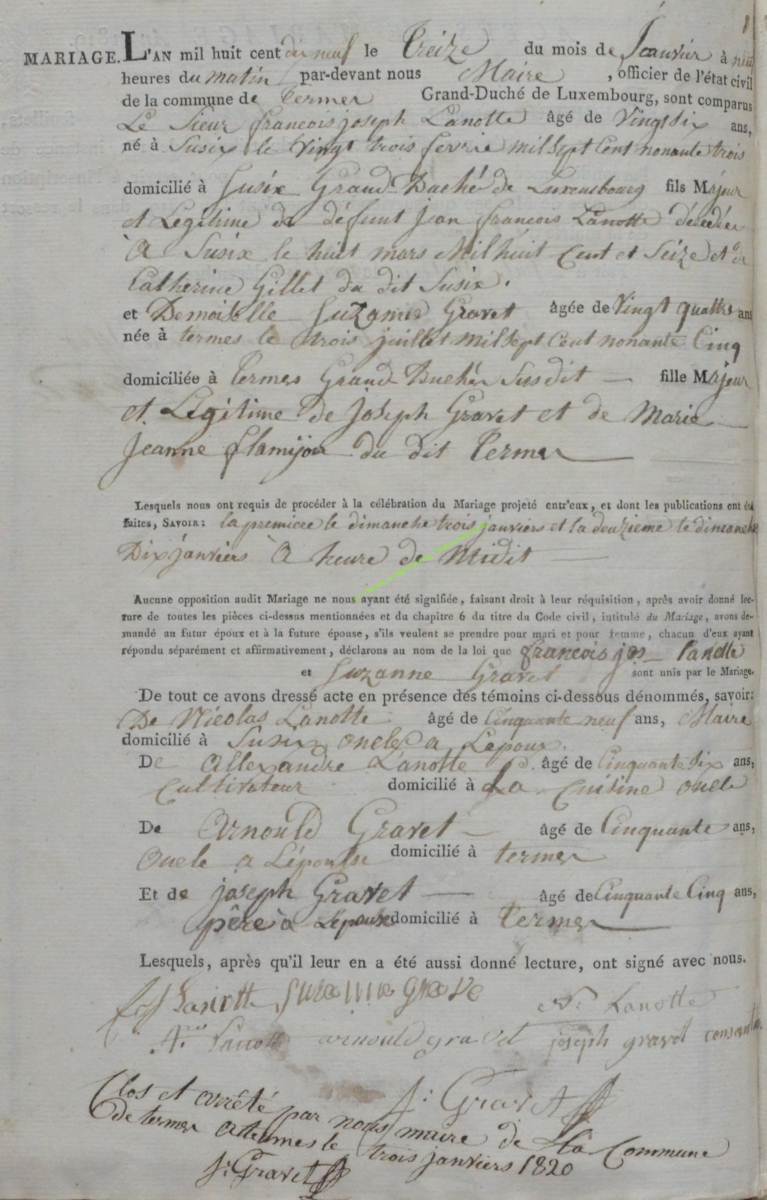 1
MARIAGE. L'AN mil huit cent dix neuf le Treize du mois de Janvier à neuf
heures du matin par-devant nous Maire , officier de l'état civil
de la commune de Termes Grand-Duché de Luxembourg, sont comparus
Le Sieur francois joseph Lanotte âgé de Vingt six ans,
né à Susix le Vingt trois fevrie mil sept Cent nonante trois
domicilié à Susix Grand Duché de Luxembourg fils Majeur
et Legitime de défunt jean francois Lanotte décédée
à Susix le huit mars Mil huit Cent et Seize et de
Catherine Gillet du dit Susix.
et Demoiselle Suzanne Gravet âgée de Vingt quattre ans
née à termes le trois juillet mil sept Cent nonante Cinq
domiciliée à Termes Grand Duchér Susdit — fille Majeur
et Légitime de Joseph Gravet et de Marie
Jeanne flamijon du dit Termes
Lesquels nous ont requis de procéder à la célébration du Mariage projeté entr'eux, et dont les publications ont été
faites, SAVOIR: la premiere le dimanche trois janviers et la deuzieme le dimanche
Dix janviers à A heure de Midit —
Aucune opposition audit Mariage ne nous ayant été signifiée, faisant droit à leur réquisition, après avoir donné lec-
ture de toutes les pièces ci-dessus mentionnées et du chapitre 6 du titre du Code civil, intitulé du Mariage, avons de-
mandé au futur époux et à la future épouse, s'ils veulent se prendre pour mari et pour femme, chacun d'eux ayant
répondu séparément et affirmativement, déclarons au nom de la loi que francois jos Lanotte
et Suzanne Gravet sont unis par le Mariage.
De tout ce avons dressé acte en présence des témoins ci-dessous dénommés, savoir:
De Nicolas Lanotte âgé de Cinquante neuf ans, Maire
domicilié à Susix oncle a Lepoux.
De Allexandre Lanotte âgé de Cinquante six ans,
Cultivateur domicilié à La Cuisine oncle
De Arnould Gravet — âgé de Cinquante ans,
Oncle a Lépouse domicilié à termes
Et de joseph Gravet — âgé de Cinquante Cinq ans,
père à Lépouse domicilié à Termes
Lesquels, après qu'il leur en a été aussi donné lecture, ont signé avec nous.
Lanotte Suzanne Grave N. Lanotte
A. Lanotte arnould gravet joseph gravet
J: Gravet
Clos et arrêté par nous maire de La Commune
de termes a termes le trois janviers 1820
J: Gravet